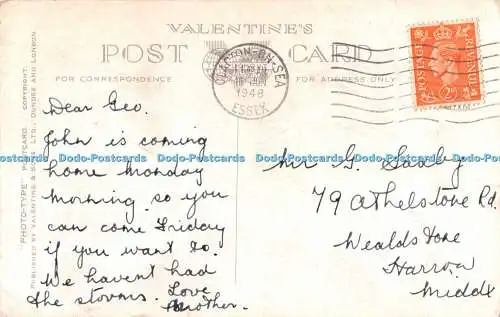 VALENTINE'S
POST CARD
FOR CORRESPONDENCE
FOR ADDRESS ONLY
CLACTON-ON-SEA
1948
ESSEX
POSTAGE
REVENUE
Dear Geo.
John is coming
home Monday
morning so you
can come Friday
if you want to.
We haven't had
the storms. Love
Mother.
Mr G. Saxby
79 Athelstone Rd.
Wealdstone
Harrow
Middx
"PHOTO-TYPE" POSTCARD. COPYRIGHT.
PUBLISHED BY VALENTINE & SONS LTD., DUNDEE AND LONDON.
Dodo-Postcards Dodo-Postcards Dodo-Postcards Dodo-Postcards Dodo-Postcards Dodo-Postcards